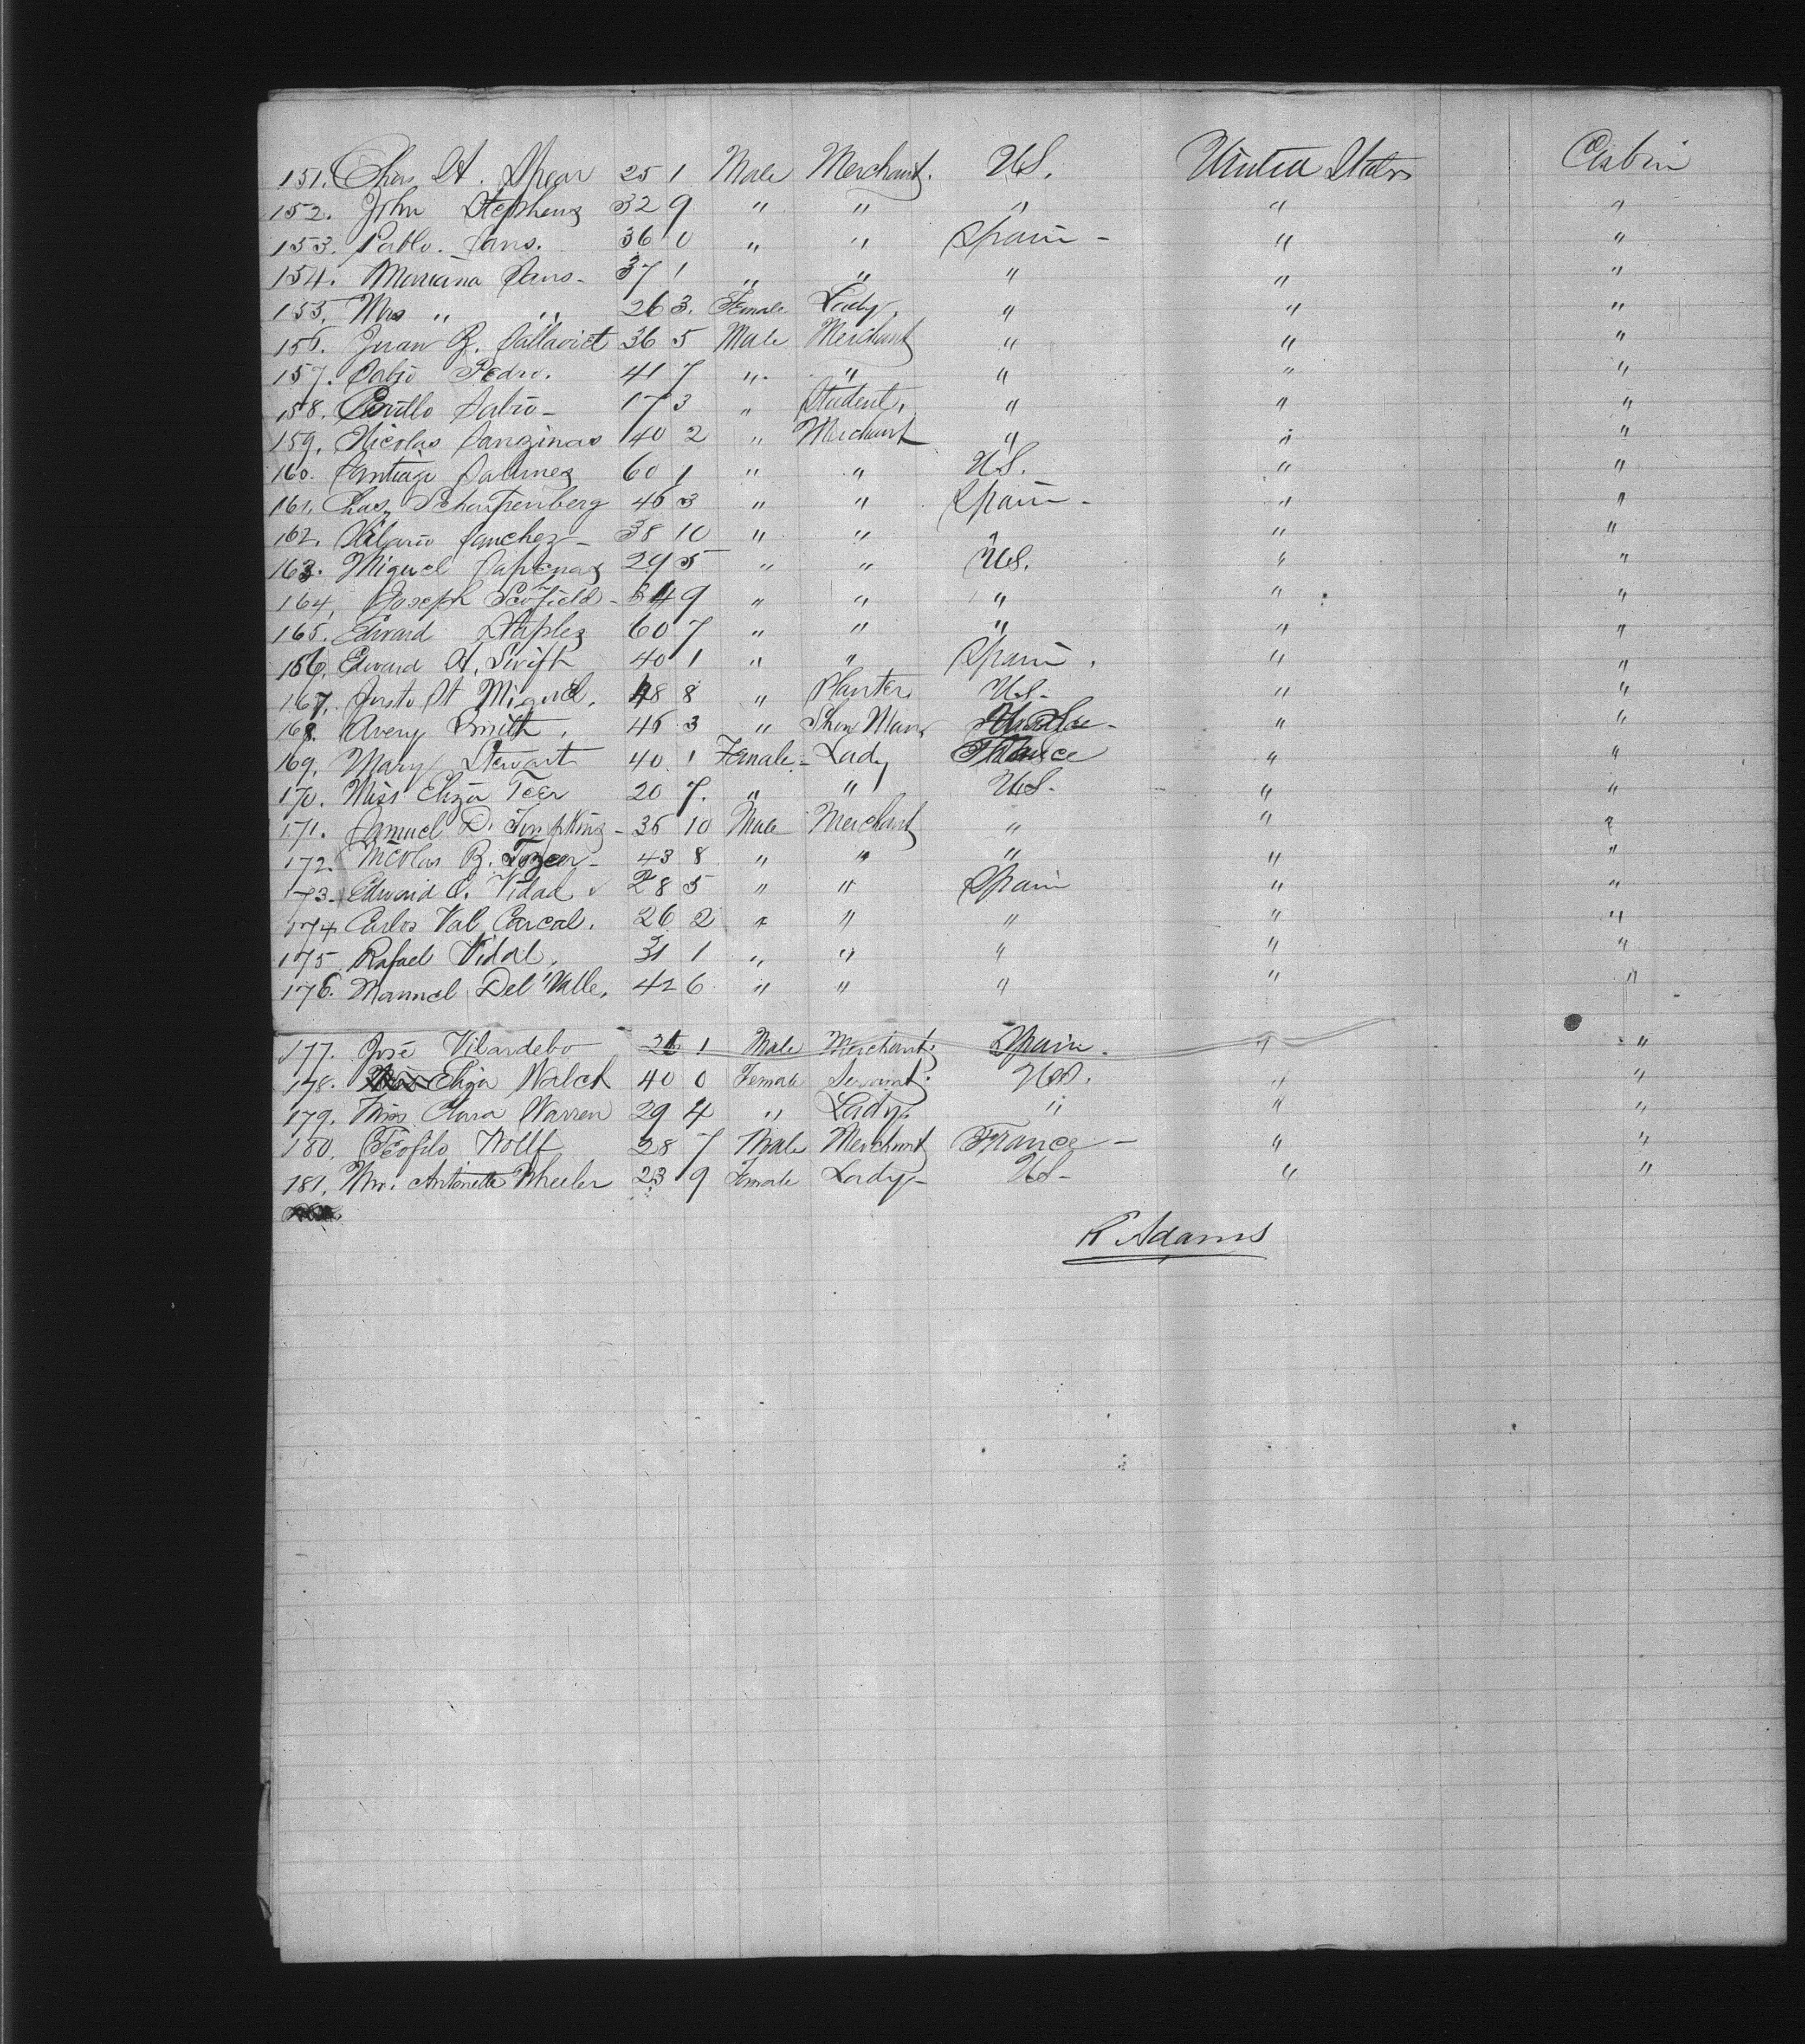 151. Chas. H. Spear 25 1 Male Merchant. US. United States Cabin
152. John Stephens 32 9 " " " " "
153. Pablo. Sans. 36 0 " " Spain - " "
154. Mariana Sans - 37 1 " " " " "
155. Mrs " " 26 3. Female Lady, " " "
156. Juan B. 36 5 Male Merchant " " "
157. Sabio Pedro. 41 7 " " " " "
158. Sabio - 17 3 " Student, " " "
159. Nicolas 40 2 " Merchant " " "
160. 60 1 " " US. " "
161. Chas, 46 3 " " Spain - " "
162. Hilario Sanchez - 38 10 " " " " "
163. Miguel 29 5 " " US. " "
164, Joseph Scofield - 9 " " " " "
165. Edward Staples 60 7 " " " " "
166. Edward H. Swift 40 1 " " Spain . " "
167. Justo St Miguel. 48 8 " Planter US - " "
168. Avery Smith . 3 " Show Man, " "
169. Mary Stewart 40 1 Female - Lady France " "
170. Miss Eliza Teer 20 7. " " US. " "
171. Samuel D. Tompkins - 10 Male Merchant " " "
172. Nicolas B. - 43 8 " " " " "
173. Edward C. Vidal 28 5 " " Spain " "
174 Carlos Val Carcal. 26 2 " " " " "
175 Rafael Vidal. 31 1 " " " " "
176. Manuel Del Valle. 42 6 " " " " "
177. José Vilardebo 1 Male Merchant. Spain. " "
178. Eliza Walch 40 0 Female Servant. US. " "
179. Miss Clara Warren 29 4 " Lady. " " "
180. Teofilo Wolff 28 7 Male Merchant France - " "
181. Mrs. Antonette Wheeler 23 9 Female Lady - US - " "
R Adams